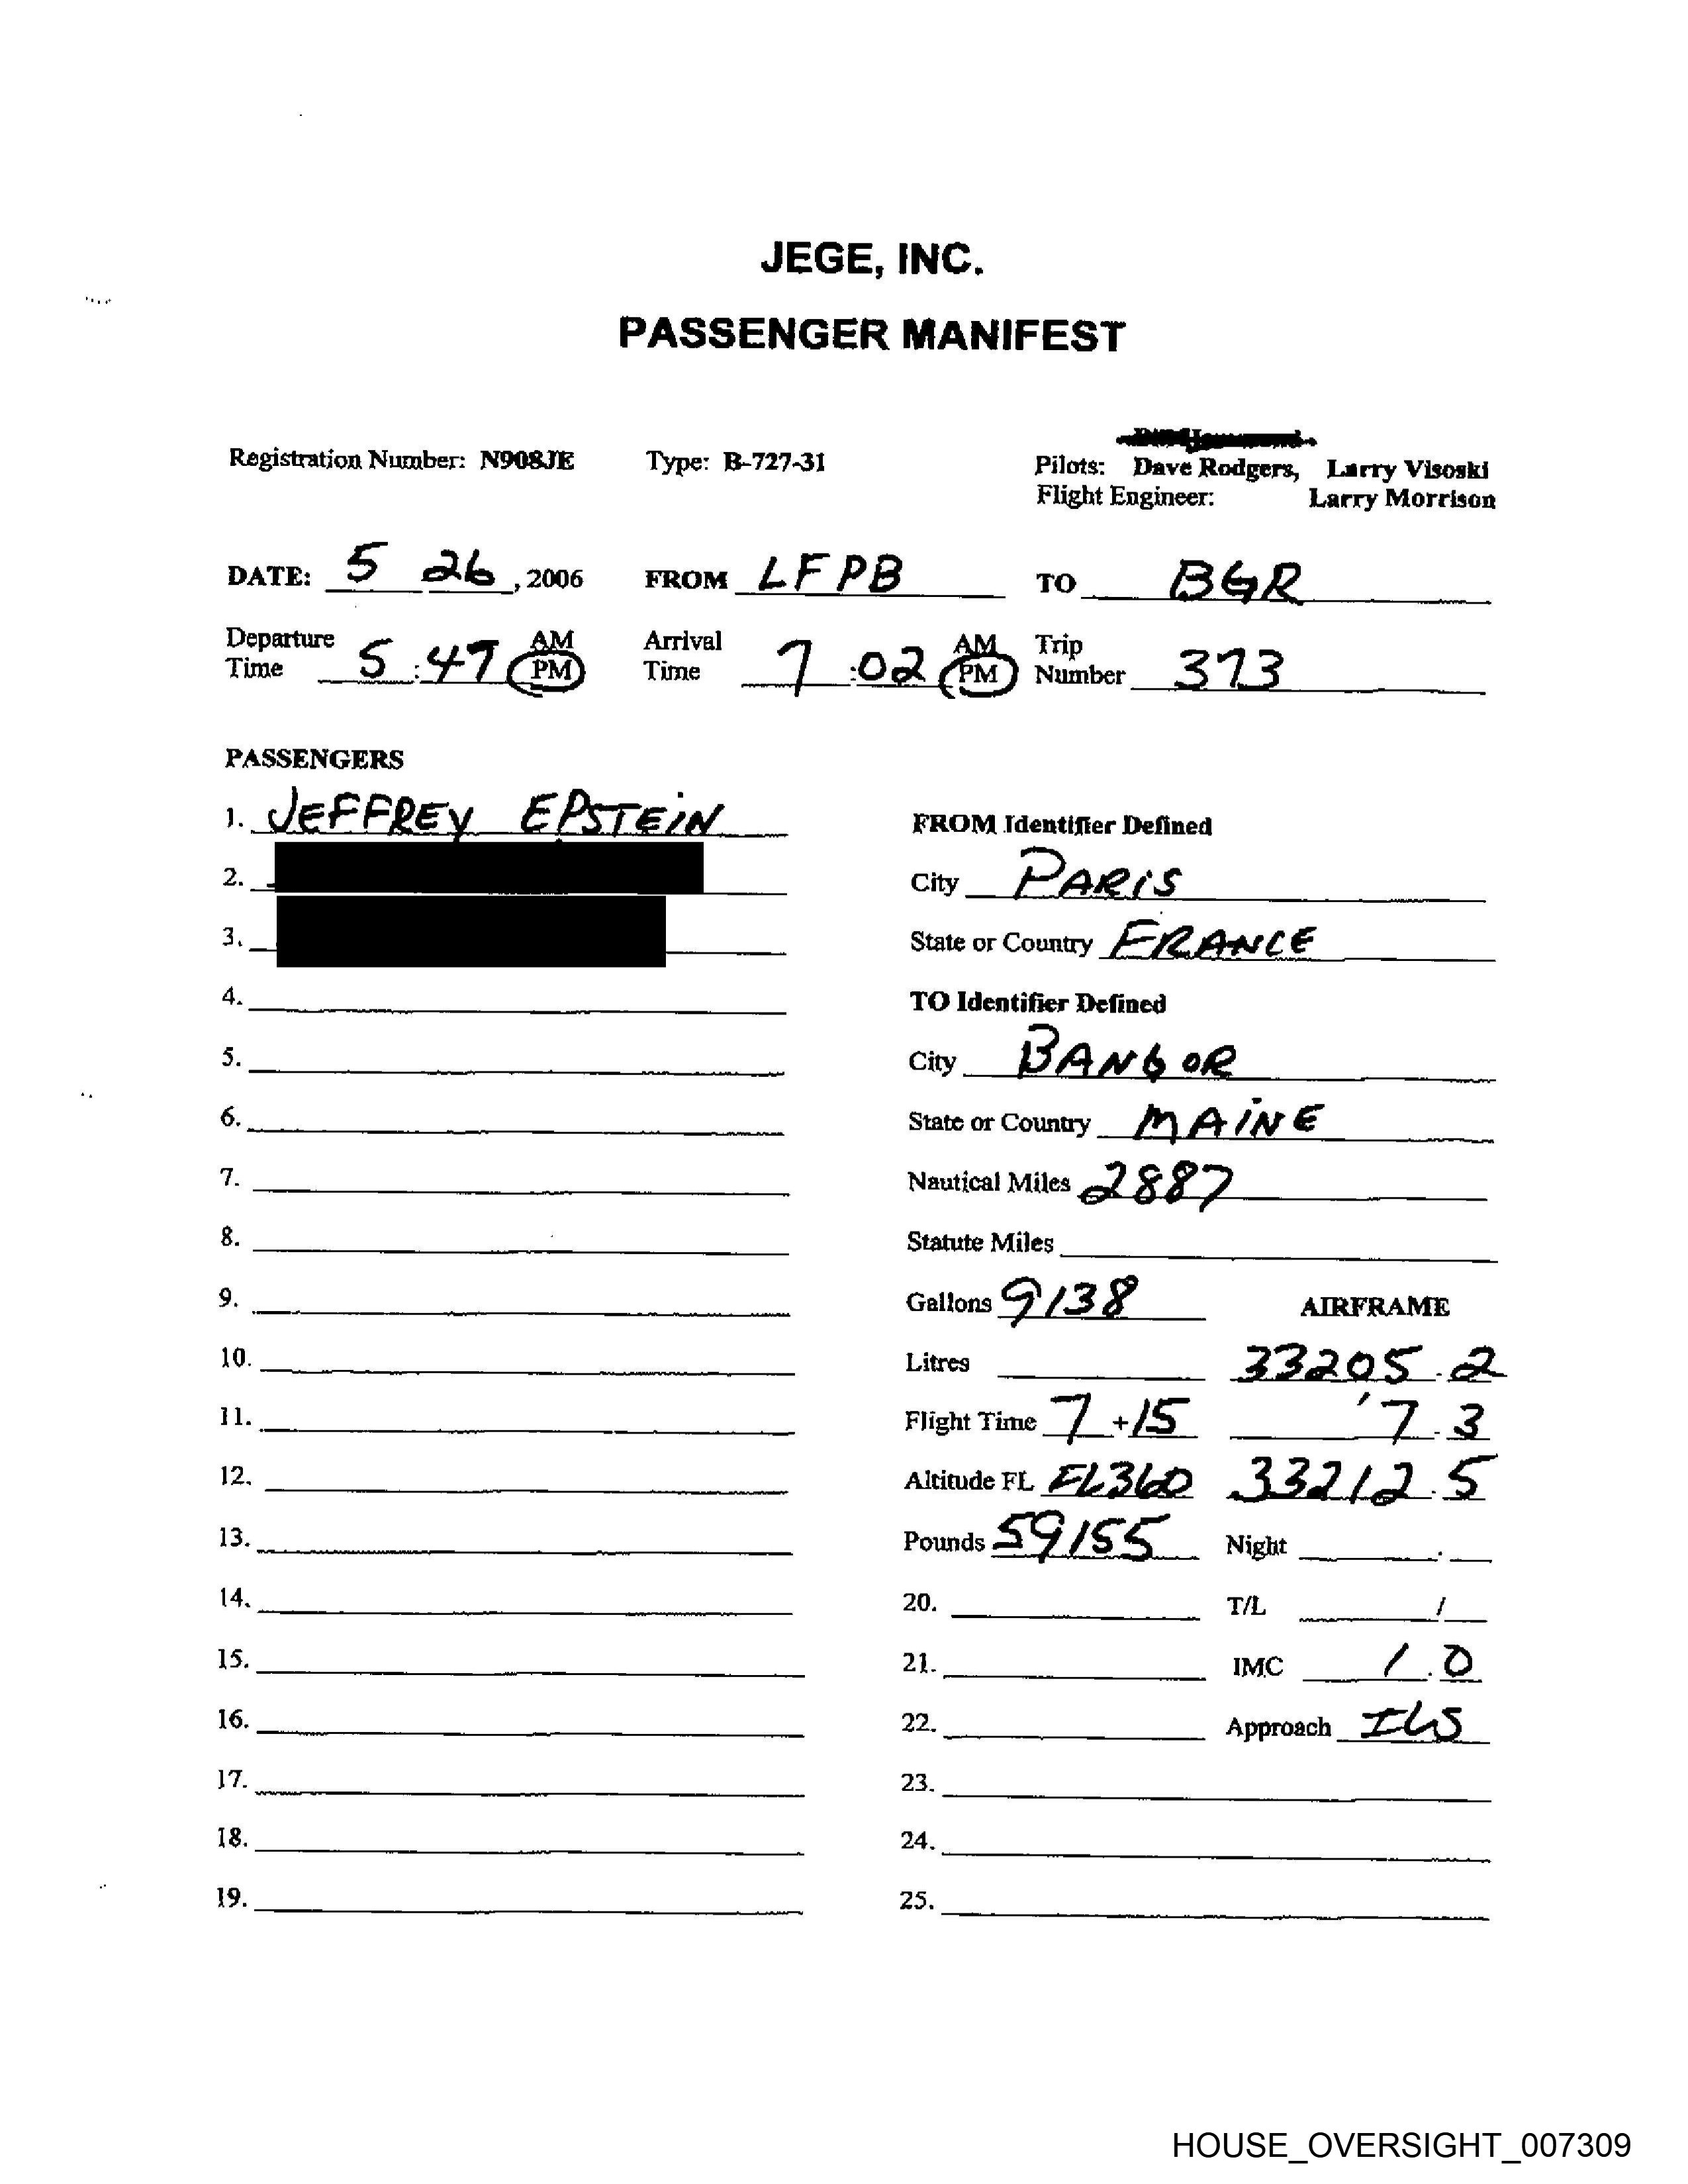 JEGE, INC.
PASSENGER MANIFEST
Registration Number: N908JE Type: B-727-31 Pilots: Dave Rodgers, Larry Visoski
Flight Engineer: Larry Morrison
DATE: 5 26, 2006 FROM LFPB TO BGR
Departure Time 5:47 AM PM Arrival Time 7:02 AM PM Trip Number 373
PASSENGERS
1. JEFFREY EPSTEIN
2.
3.
4.
5.
6.
7.
8.
9.
10.
11.
12.
13.
14.
15.
16.
17.
18.
19.
FROM Identifier Defined
City PARIS
State or Country FRANCE
TO Identifier Defined
City BANGOR
State or Country MAINE
Nautical Miles 2887
Statute Miles
Gallons 9138 AIRFRAME
Litres 33205.2
Flight Time 7+15 7.3
Altitude FL FL360 33212.5
Pounds 59155 Night .
20. T/L /
21. IMC 1.0
22. Approach ILS
23.
24.
25.
HOUSE_OVERSIGHT_007309